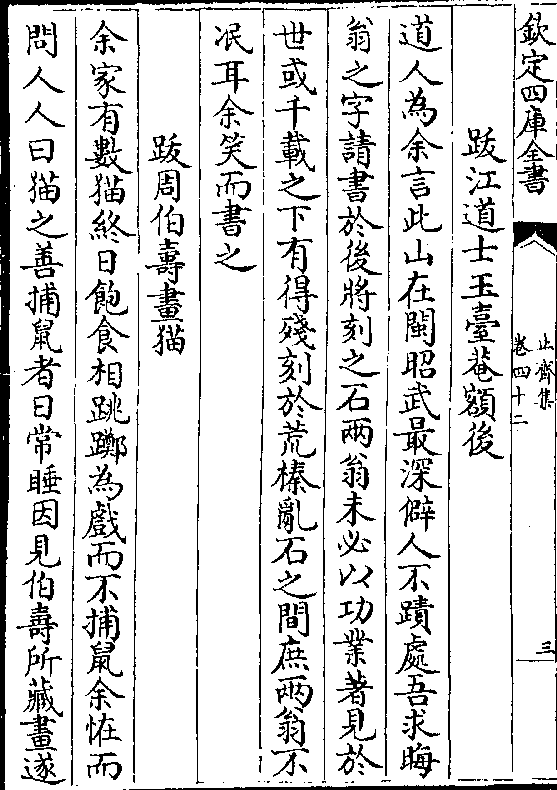 欽定四庫全書
止齋集
卷四十二
三
跋江道士玉臺菴額後
道人為余言此山在閩昭武最深僻人不蹟處吾求晦
翁之字請書於後將刻之石兩翁未必以功業著見於
世或千載之下有得殘刻於荒榛亂石之間庶兩翁不
泯耳余笑而書之
跋周伯壽畫猫
余家有數猫終日飽食相跳躑為戲而不捕鼠余怪而
問人人曰猫之善捕鼠者日常睡因見伯壽所藏畫遂